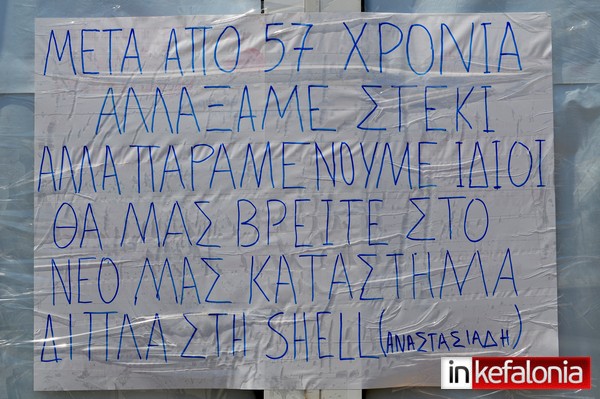 ΜΕΤΑ ΑΠΟ 57 ΧΡΟΝΙΑ
ΑΛΛΑΞΑΜΕ ΣΤΕΚΙ
ΑΛΛΑ ΠΑΡΑΜΕΝΟΥΜΕ ΙΔΙΟΙ
ΘΑ ΜΑΣ ΒΡΕΙΤΕ ΣΤΟ
ΝΕΟ ΜΑΣ ΚΑΤΑΣΤΗΜΑ
ΔΙΠΛΑ ΣΤΗ SHELL (ΑΝΑΣΤΑΣΙΑΔΗ)
inkefalonia